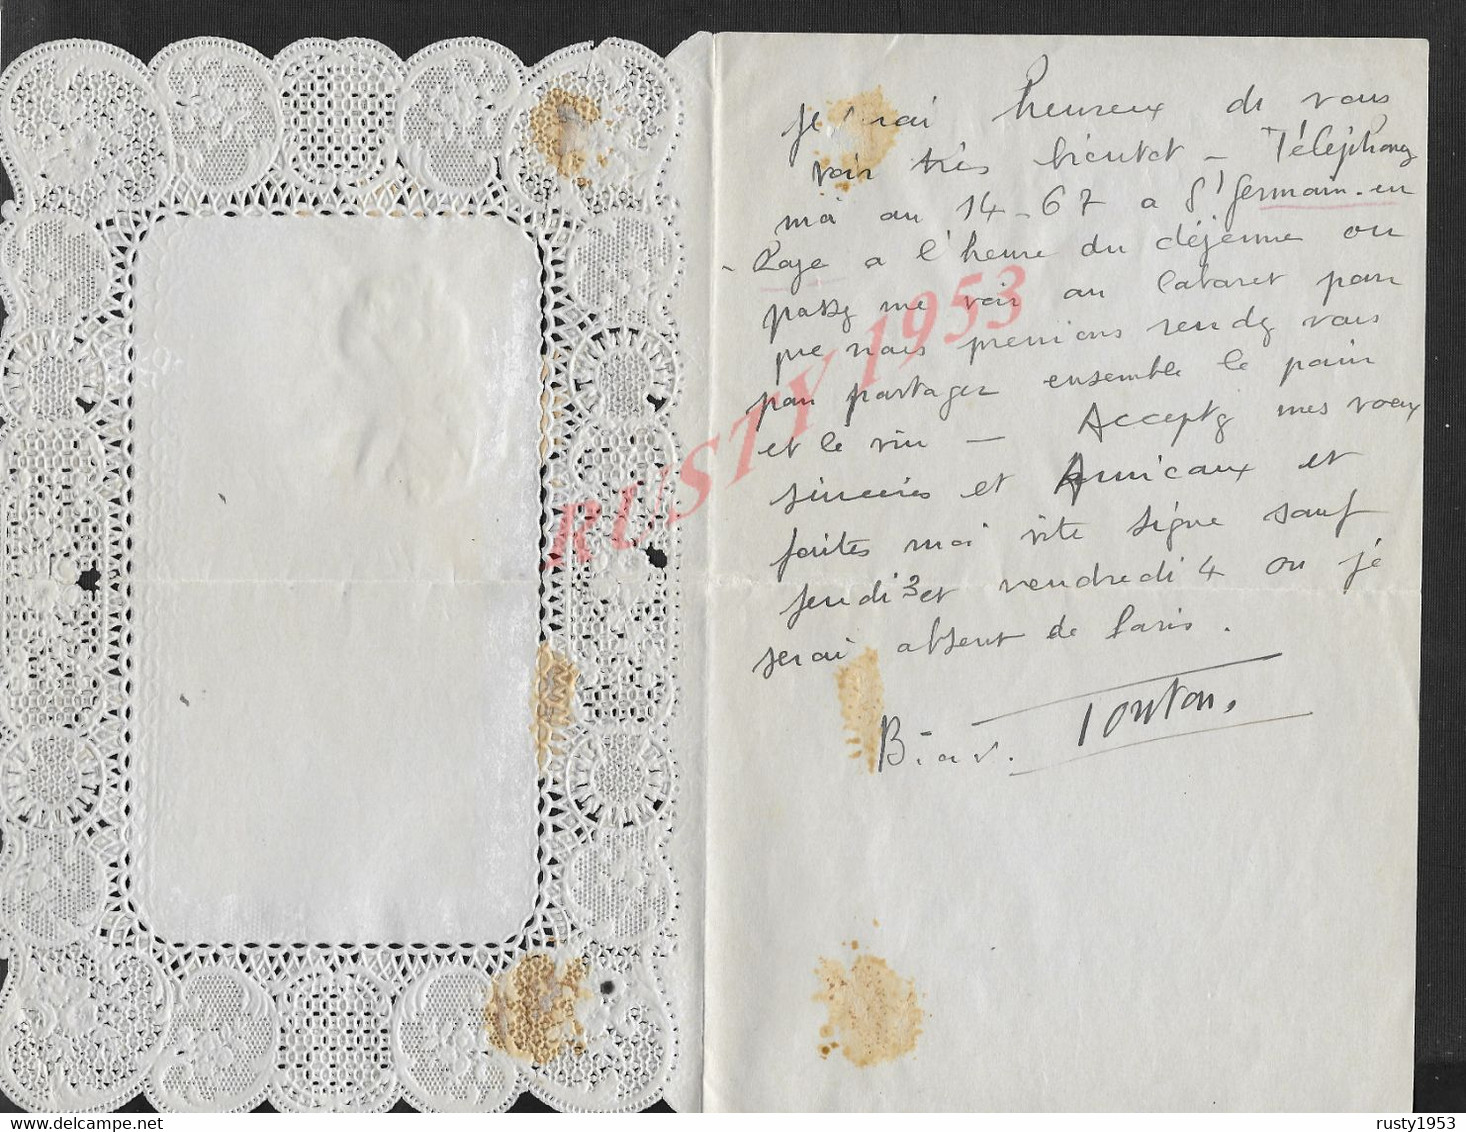 Je serai heureux de vous
voir très bientot – Téléphonez
moi au 14-67 a St Germain-en
-Laye a l'heure du déjeuné ou
passez me voir au Cabaret pour
que nous prenions rendez vous
pour partager ensemble le pain
et le vin — Acceptez mes voeux
sinceres et Amicaux et
faites moi vite signe sauf
jeudi 3 et vendredi 4 ou je
serai absent de Paris.
Touton.
RUSTY 1953
rusty1953